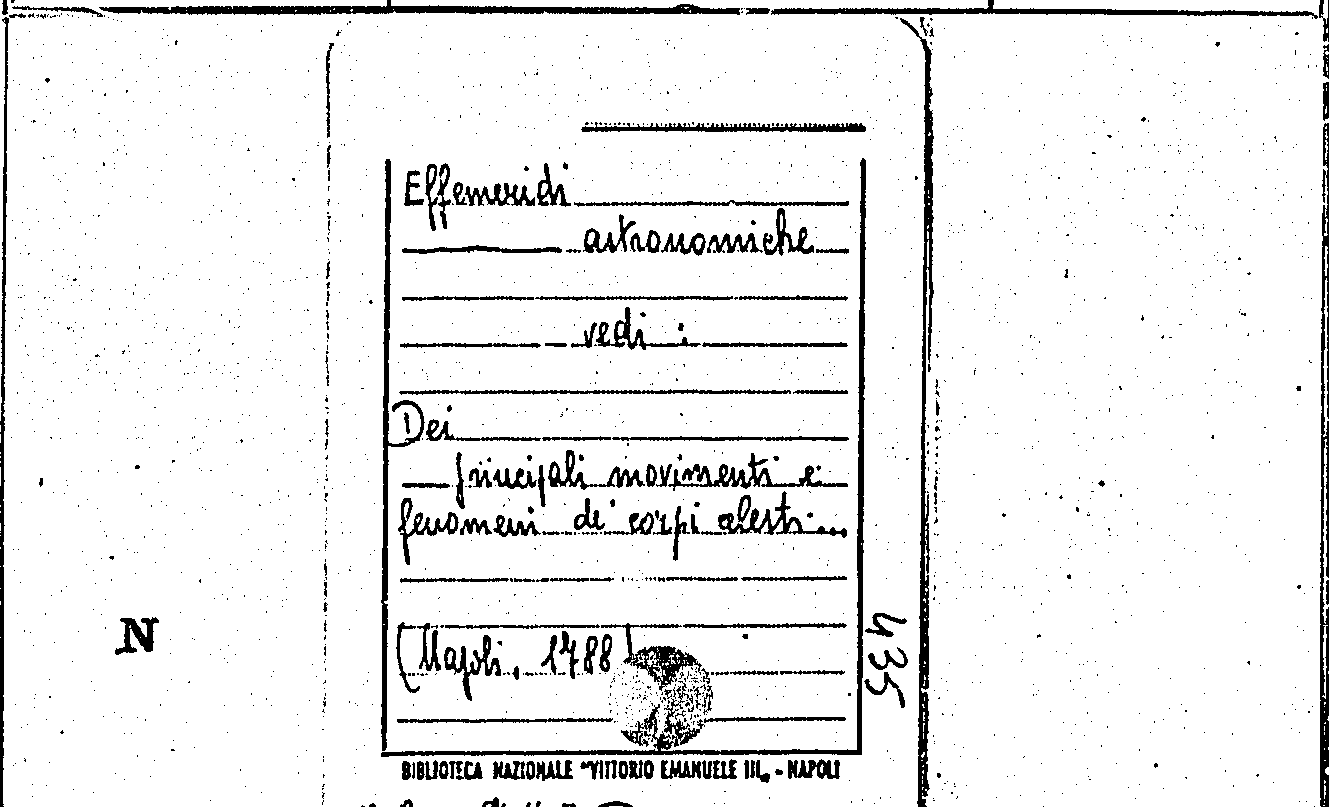 Effemeridi
astronomiche
vedi :
Dei
principali movimenti e
fenomeni de' corpi celesti...
(Napoli, 1788)
435
N
BIBLIOTECA NAZIONALE "VITTORIO EMANUELE III„ - NAPOLI